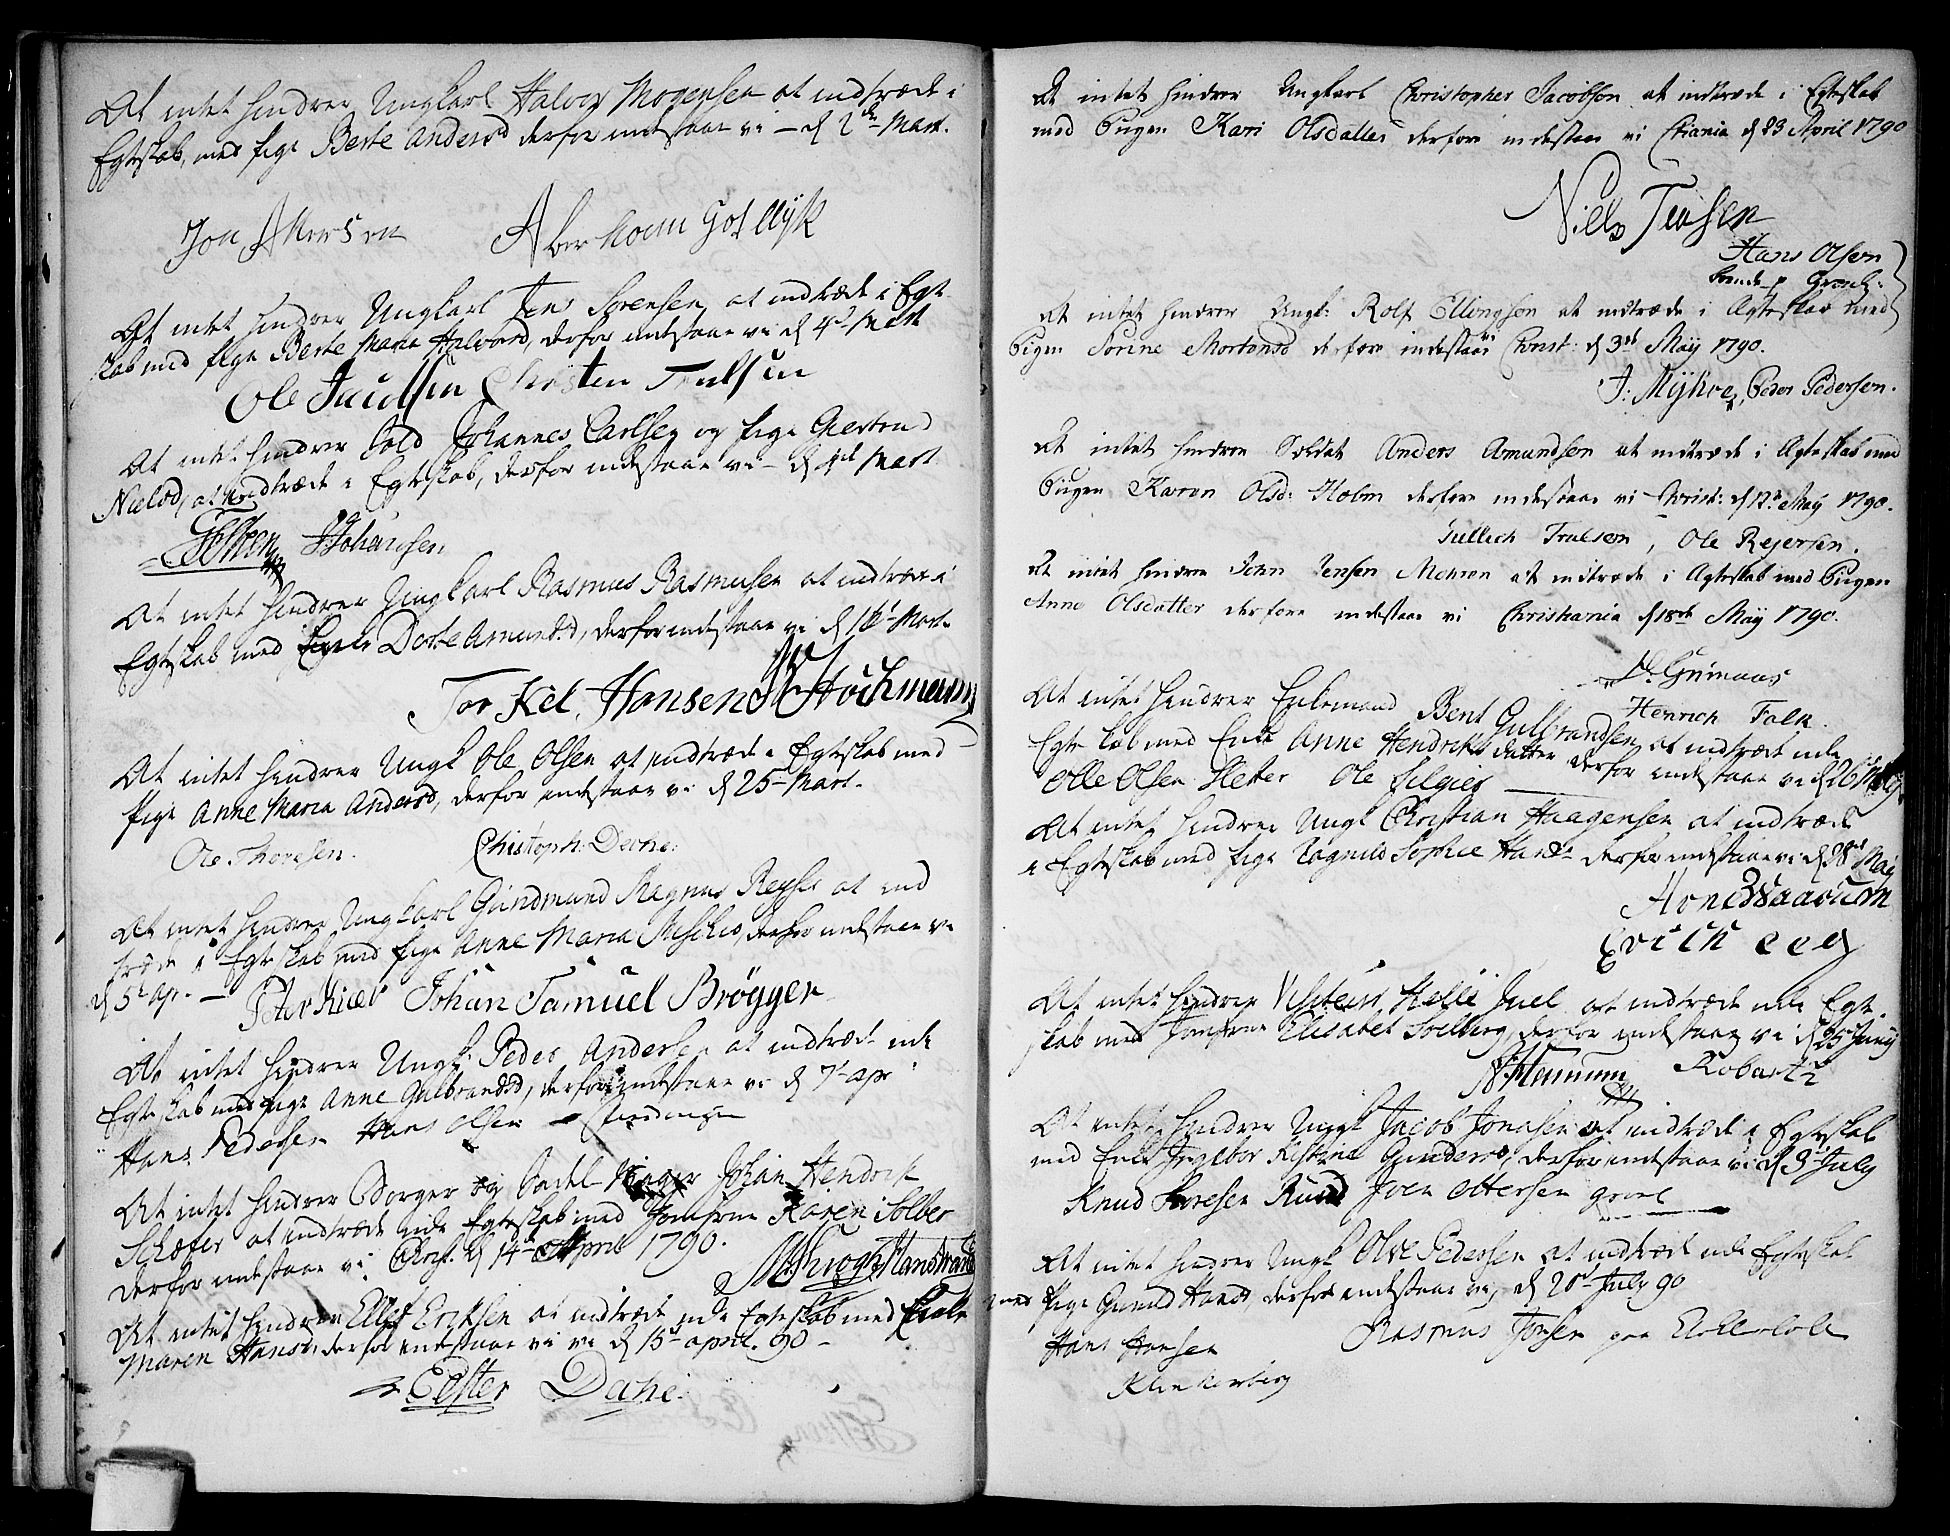 At intet hindrer Ungkarl Halvor Mogensen at indtræde i
Egteskab, med pige Berte Andersd derfor indestaae vi – d 2den Mart.
Jon
At intet hindrer Ungkarl Jens Sørensen, at indtræde i Egte
skab med pige Berte Maria Halvorsd, derfor indestaae vi d 4d Mart
Ole Chresten Trulsen
At intet hindrer Sold Johannes Carlsen og pige Giertrud
Nielsd, at indtræde i Egteskab, derfor indestaae vi – d 4de Mart
Johansen
At intet hindrer Ungkarl Rasmus Rasmusen at indtræde i
Egteskab med Dorte Amundsd, derfor indestaae vi d Mart.
Tor Kel Hansen Stockmann
At intet hindrer Ungk Ole Olsen at indtræde i Egteskab med
pige Anne Maria Andersd, derfor indestaae vi d 25 Mart.
Ole Thoresen. Christoph:
At intet hindrer Ungkarl Gundmand Magnus at ind
træde i Egteskab med pige Anne Maria derfor indestaae vi
d 5t Ap. – Johan Samuel Brøgger
At intet hindrer Ungk: Peder Andersen at indtræde ude
Egteskab med pige Anne Gulbrandsd, derfor indestaae vi d 7 apr
Hans Pedersen Hans Olsen
At intet hindrer Borger og Sadelmager Johan Hendrik
Schæfer at indtræde ude Egteskab med Jomfrue Karen Solber
derfor indestaae vi Christ. d 14 April 1790.
At intet hindrer Ellef Eriksen at indtræde ude Egteskab med Enke
Maren Hansd: derfor indestaae vi vi d 15t april. 90 –
At intet hindrer Ungkarl Christopher Jacobsen at indtræde i Egteskab
med Pigen Kari Olsdatter derfore indestaae vi Chania d 23 April 1790
Niels Jensen
Hans Olsen
At intet hindrer Ungk: Rolf Ellingsen at indtræde i Ægteskab med
Pigen Sorine Mortensd derfore indestaae vi Christ: d 3de May 1790.
Peder Pedersen.
At intet hindrer Soldat Anders Amundsen at indtræde i Ægteskab med
Pigen Karen Olsd: Holm derfore indestaae vi Christ: d 12te May 1790.
Gullich Trulsen, Ole Rejersen.
At intet hindrer John Jensen Mohren at indtræde i Ægteskab med Pigen
Anne Olsdatter derfore indestaae vi Christiania d 18de May 1790.
Henrich Falk.
At intet hindrer Enkemand Bent Gulbrandsen at indtræde ude
Egteskab med Enke Anne Hendriksdatter derfor indestaae vi d 26 May
Olle Olsen Sleter Ole
At intet hindrer Ungk Christian Haagensen at indtræde
i Egteskab med pige Ragnild Sophie Hansd derfor indestaae vi d 28de May
Arne
At intet hindrer Juel at indtræde ude Egte
skab med Jomfrue Elisabet Solberg, derfor indestaae vi d 25 Juny
At intet hindrer Ungk Jacob Jonasen at indtræde i Egteskab
med Enke Ingebor Kistine Gundersd, derfor indestaae vi d 3 July
Knud Thoresen Ruud Joen Ottersen
At intet hindrer Ungk Olve Pedersen at indtræde ude Egteskab
med pige Gunild Hansd, derfor indestaae vi, d 20t July 90
Hans Hansen Rasmus Jensen paa
Klinkenberg